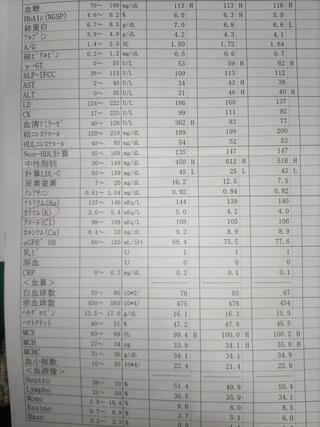 血糖 70 ～ 109 mg/dL 113 H 113 H 116 H
HbA1c (NGSP) 4.6～ 6.2 % 6.0 6.3 H 5.9
総蛋白 6.7～ 8.3 g/dL 7.0 6.8 6.6 L
アルブミン 3.9～ 4.9 g/dL 4.2 4.3 4.1
A/G 1.4～ 2.5 1.50 1.72 1.64
総ビリルビン 0.2～ 1.2 mg/dL 0.5 0.6 0.7
γ-GT 0～ 55 U/L 53 59 H 62 H
ALP-IFCC 38～ 113 U/L 109 113 112
AST 2～ 40 U/L 34 43 H 38
ALT 0～ 35 U/L 31 46 H 40 H
LD 124～ 222 U/L 186 160 137
CK 17～ 225 U/L 99 111 92
血清アミラーゼ 40～ 126 U/L 362 H 83 77
総コレステロール 120～ 219 mg/dL 189 199 200
HDLコレステロール 40～ 93 mg/dL 54 52 53
Non-HDL計算 mg/dL 135 147 147
中性脂肪 30～ 149 mg/dL 450 H 612 H 518 H
計算LDL-C 65～ 139 mg/dL 45 L 25 L 43 L
尿素窒素 7～ 20 mg/dL 16.2 12.5 7.5
クレアチニン 0.61～ 1.04 mg/dL 0.92 0.84 0.82
ナトリウム(Na) 137～ 146 mEq/L 144 139 140
カリウム(K) 3.6～ 5.4 mEq/L 5.0 4.2 4.0
クロール(Cl) 98～ 108 mEq/L 108 105 106
カルシウム(Ca) 8.4～ 10 mg/dL 9.2 8.9 8.9
eGFR' 08 60～ 120 68.4 75.5 77.6
乳ビ U 1 U
溶血 U 0 U
CRP 0～ 0.3 mg/dL 0.2 0.1 0.1
＜血算＞
白血球数 33～ 86 10*2/ 78 85 67
赤血球数 430～ 560 10*4/ 475 478 454
ヘモグロビン 13.5～ 17.0 g/dL 16.1 16.3 15.9
ヘマトクリット 40～ 51 % 47.2 47.8 45.5
MCV 83～ 99 fL 99.4 H 100.0 H 100.2 H
MCH 27～ 34 pg 33.9 34.1 H 35.0 H
MCHC 31～ 36 g/dL 34.1 34.1 34.9
血小板数 15～ 35 10*4/ 22.4 21.4 22.9
＜血液像＞
Neutro 39～ 70 % 51.4 49.9 50.4
Lympho % 35.5 35.9 34.1
Mono % 8.6 8.0 8.5
Eosino
Baso